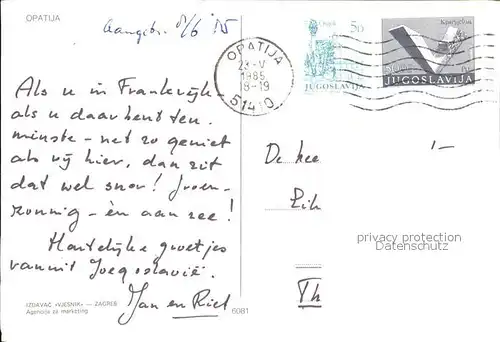 OPATIJA
Aangek. 8/6 '85
OPATIJA
23-V
1985
18-19
51410
50
JUGOSLAVIJA
JUGOSLAVIJA
Als u in Frankrijk -
als u daar bent ten -
minste - net zo geniet
als wij hier, dan zit
dat wel snor! Groen -
zonnig - èn aan zee!
Hartelijke groetjes
vanuit Joegoslavië.
Jan en Riet
De hee
1-
privacy protection
Datenschutz
Th
IZDAVAČ «VJESNIK» — ZAGREB
Agencija za marketing
6081